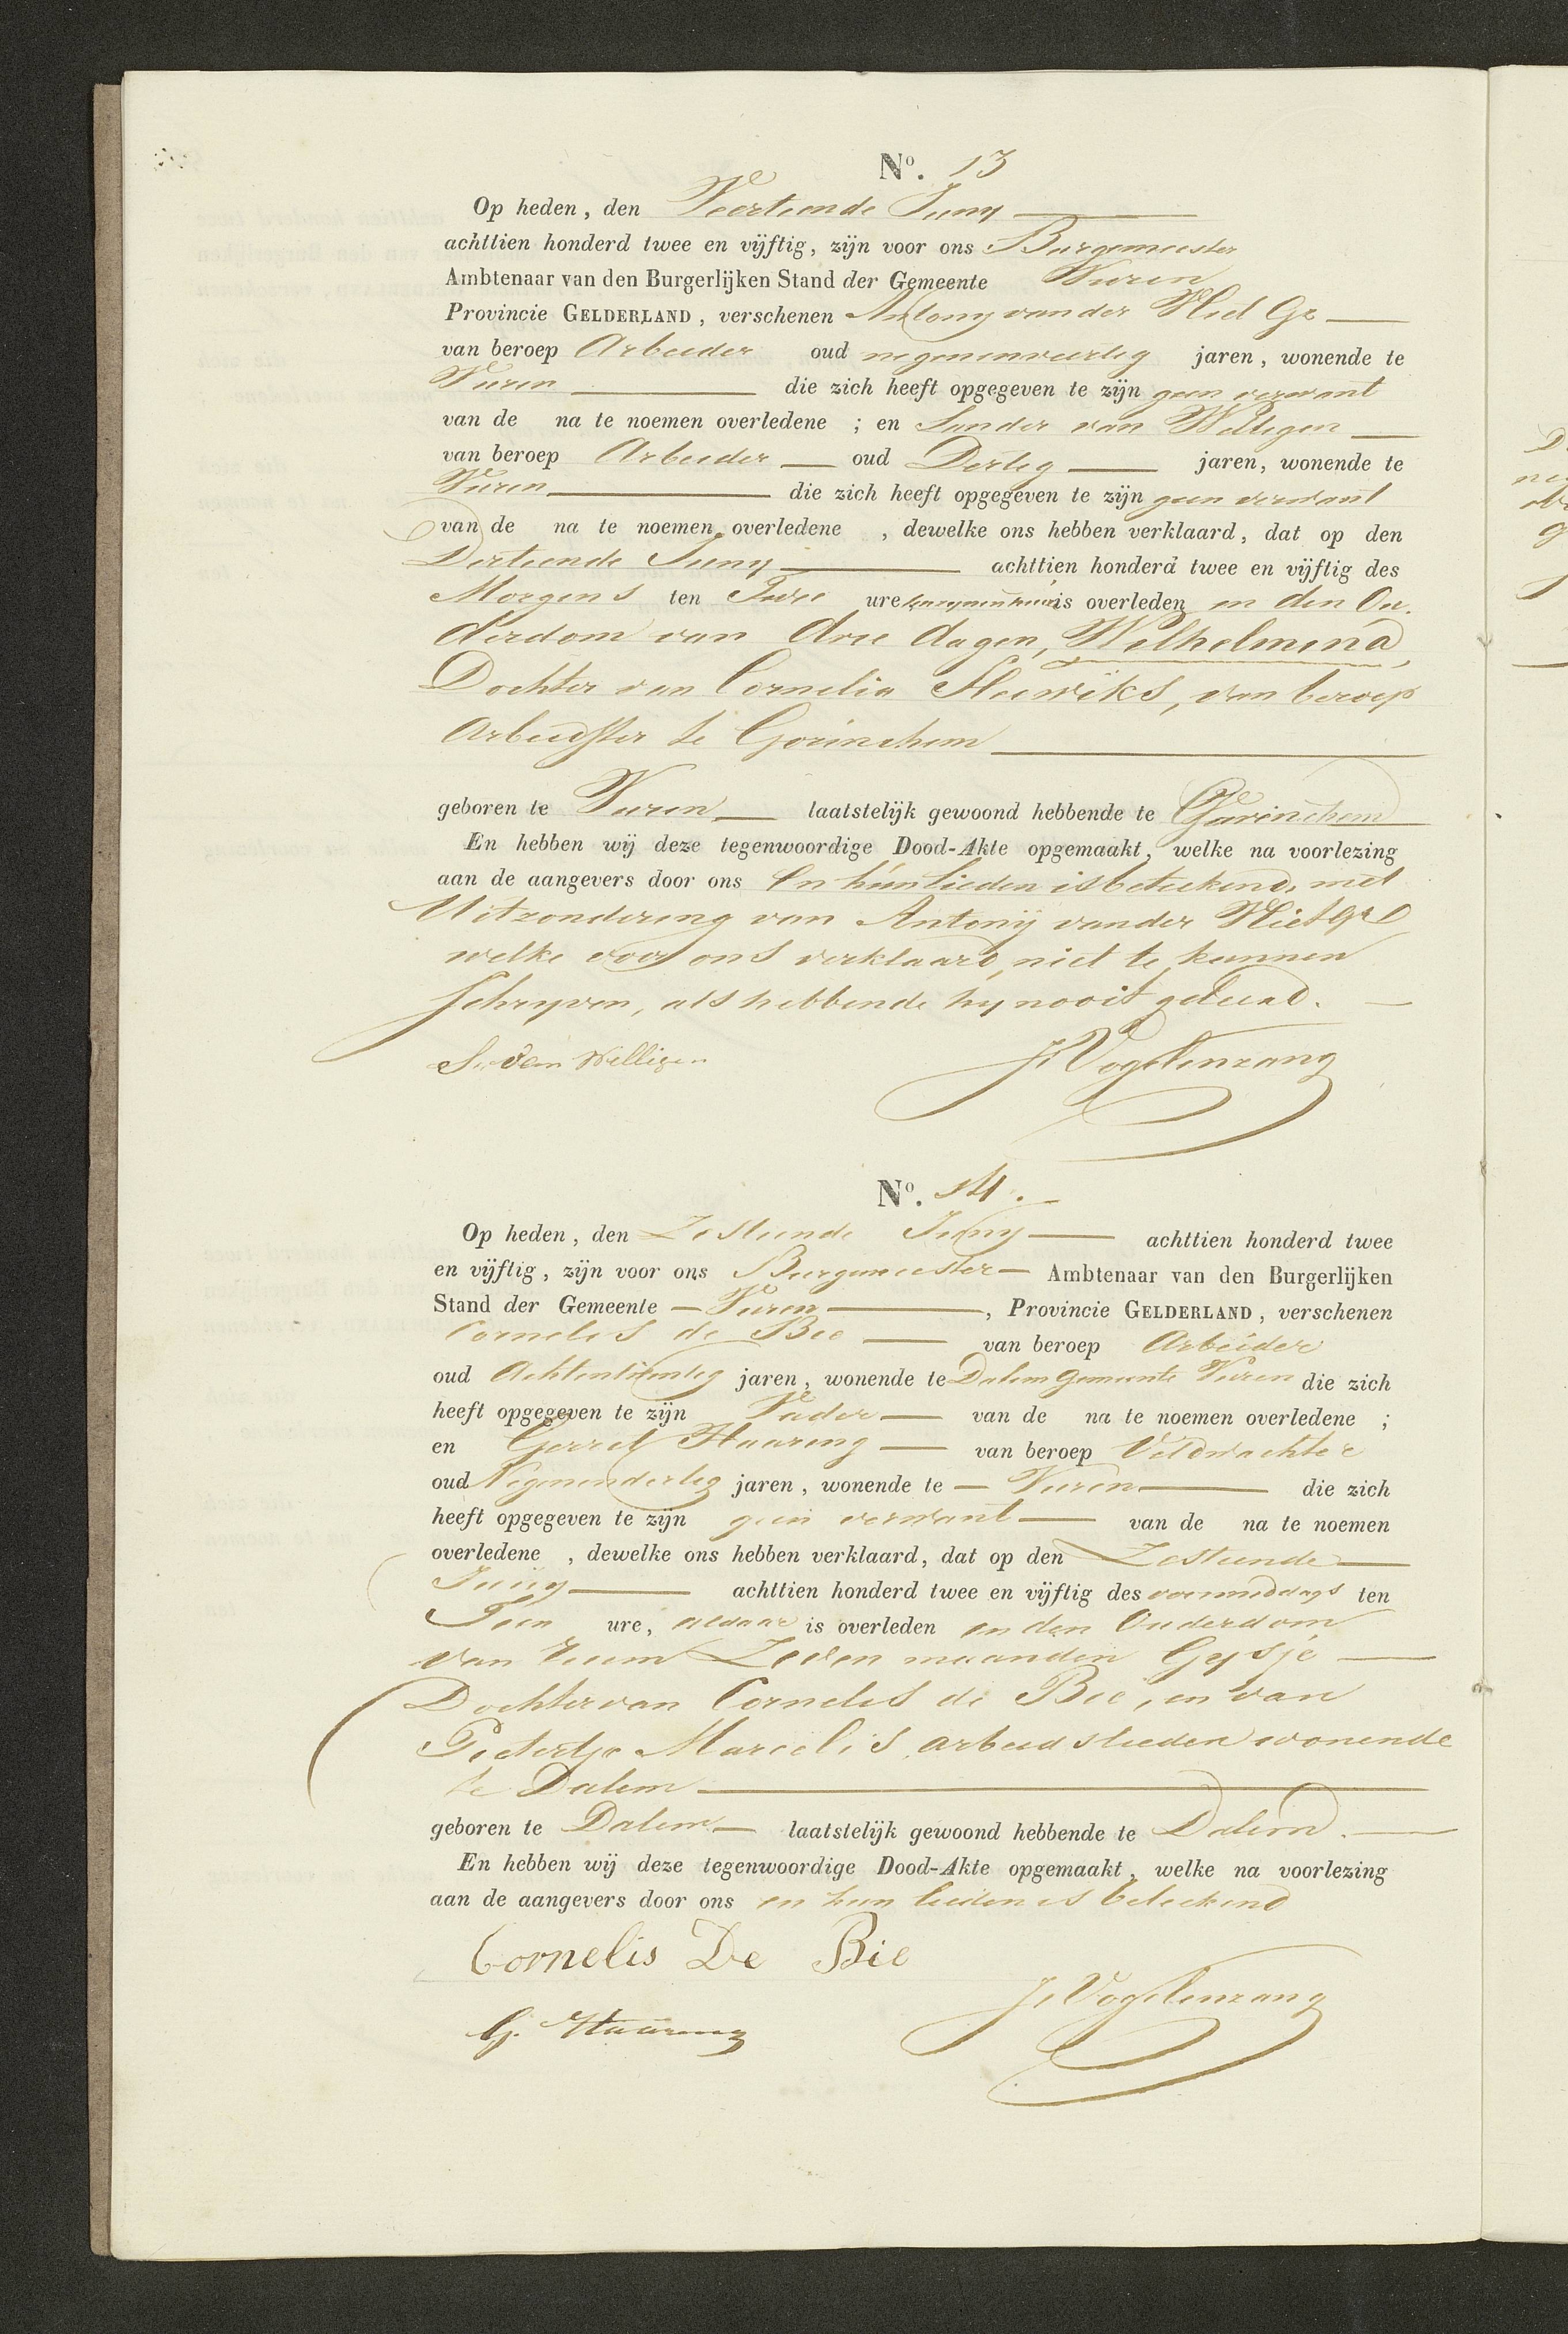 Nº. 13
Op heden, den Veertiende Juny
achttien honderd twee en vijftig, zijn voor ons Burgemeester
Ambtenaar van den Burgerlijken Stand der Gemeente Vuren
Provincie GELDERLAND, verschenen Antony van der Vliet Gz
van beroep Arbeider oud negenenveertig jaren, wonende te
Vuren die zich heeft opgegeven te zijn geen verwant
van de na te noemen overledene ; en Sander van Willigen
van beroep Arbeider oud Dertig jaren, wonende te
Vuren die zich heeft opgegeven te zijn geen verwant
van de na te noemen overledene , dewelke ons hebben verklaard, dat op den
Dertiende Juny achttien honderd twee en vijftig des
Morgens ten Twee ure is overleden in den Ou-
derdom van drie dagen, Wilhelmina,
Dochter van Cornelia Sleeuwiks, van beroep
Arbeidster te Gorinchem
geboren te Vuren laatstelijk gewoond hebbende te Gorinchem
En hebben wij deze tegenwoordige Dood-Akte opgemaakt, welke na voorlezing
aan de aangevers door ons en hun lieden is beteekend, met
Uitzondering van Antonij van der Vliet Gz
welke voor ons verklaard, niet te kunnen
Schryven, als hebbende hy nooit geleerd.
S. van Willigen J. Vogelenzang
Nº. 14.
Op heden, den Zestiende Juny achttien honderd twee
en vijftig, zijn voor ons Burgemeester Ambtenaar van den Burgerlijken
Stand der Gemeente Vuren, Provincie GELDERLAND, verschenen
Cornelis de Bie van beroep Arbeider
oud Achtentwintig jaren, wonende te Dalem Gemeente Vuren die zich
heeft opgegeven te zijn Vader van de na te noemen overledene ;
en Gerrit Haaring van beroep Veldwachter
oud Negenendertig jaren, wonende te Vuren die zich
heeft opgegeven te zijn geen verwant van de na te noemen
overledene , dewelke ons hebben verklaard, dat op den Zestiende
Juny achttien honderd twee en vijftig des voormiddags ten
Tien ure, aldaar is overleden in den Ouderdom
van ruim Zeven maanden Gysje
Dochter van Cornelis de Bie, en van
Pietertje Marcelis arbeidslieden wonende
te Dalem
geboren te Dalem laatstelijk gewoond hebbende te Dalem.
En hebben wij deze tegenwoordige Dood-Akte opgemaakt, welke na voorlezing
aan de aangevers door ons en hun lieden is beteekend
Cornelis De Bie
G. Haaring J. Vogelenzang